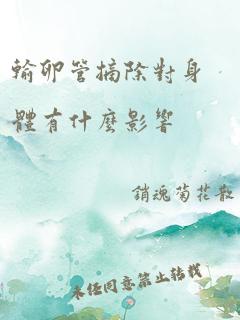 輸卵管摘除對身
體有什麼影響
銷魂菊花散
未經同意禁止轉載